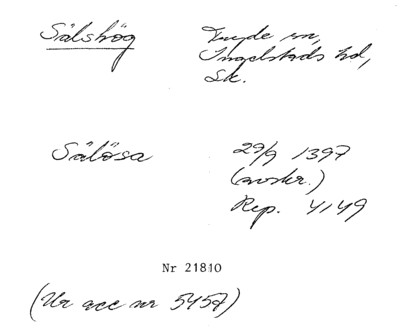 Sälshög
Tryde sn,
Ingelstads hd,
Sk.
Sälösa
29/9 1397
(avskr.)
Rep. 4149
Nr 21810
(Ur acc nr 5457)